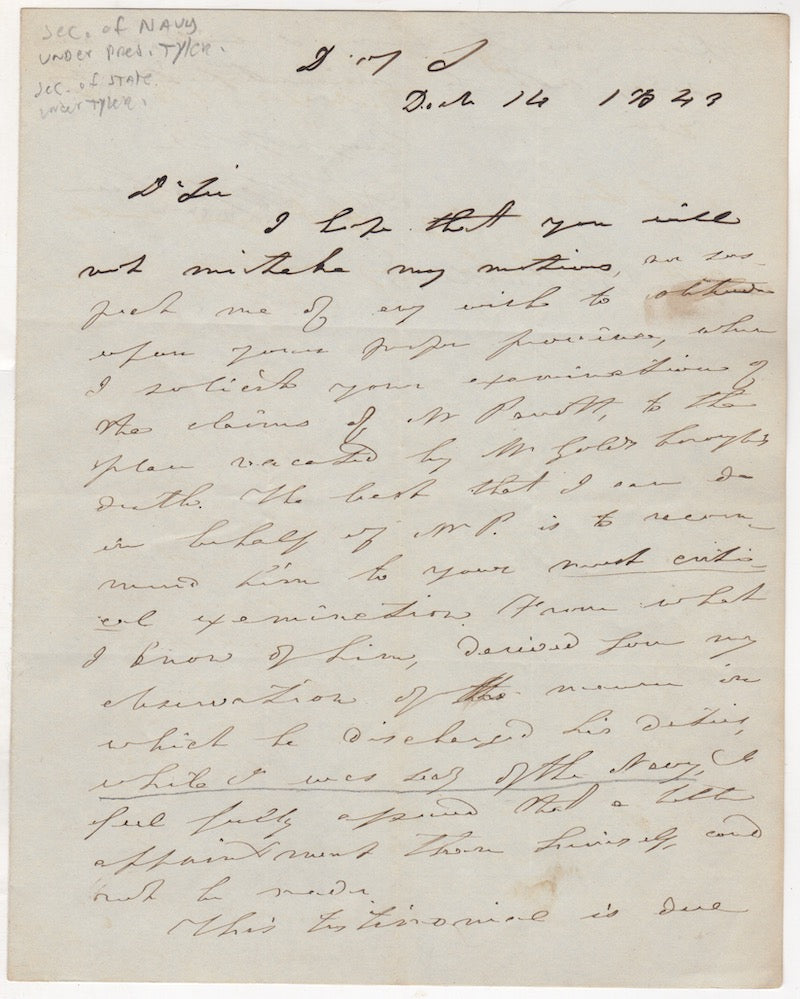 Sec. of NAVY
UNDER Pres. Tyler.
Sec. of STATE
under Tyler.
D of S
Dec 14 1843
Dr Sir
I hope that you will
not mistake my motives, nor sus-
pect me of any wish to obtrude
upon your proper province, when
I solicit your examination of
the claims of Mr Parrott, to the
place vacated by Mr Goldsborough's
death. The best that I can do
in behalf of Mr P. is to recom-
mend him to your most criti-
cal examination. From what
I know of him, derived from my
observation of the manner in
which he discharged his duties,
while I was Secy of the Navy, I
feel fully assured that a better
appointment than himself, could
not be made.
This testimonial is due